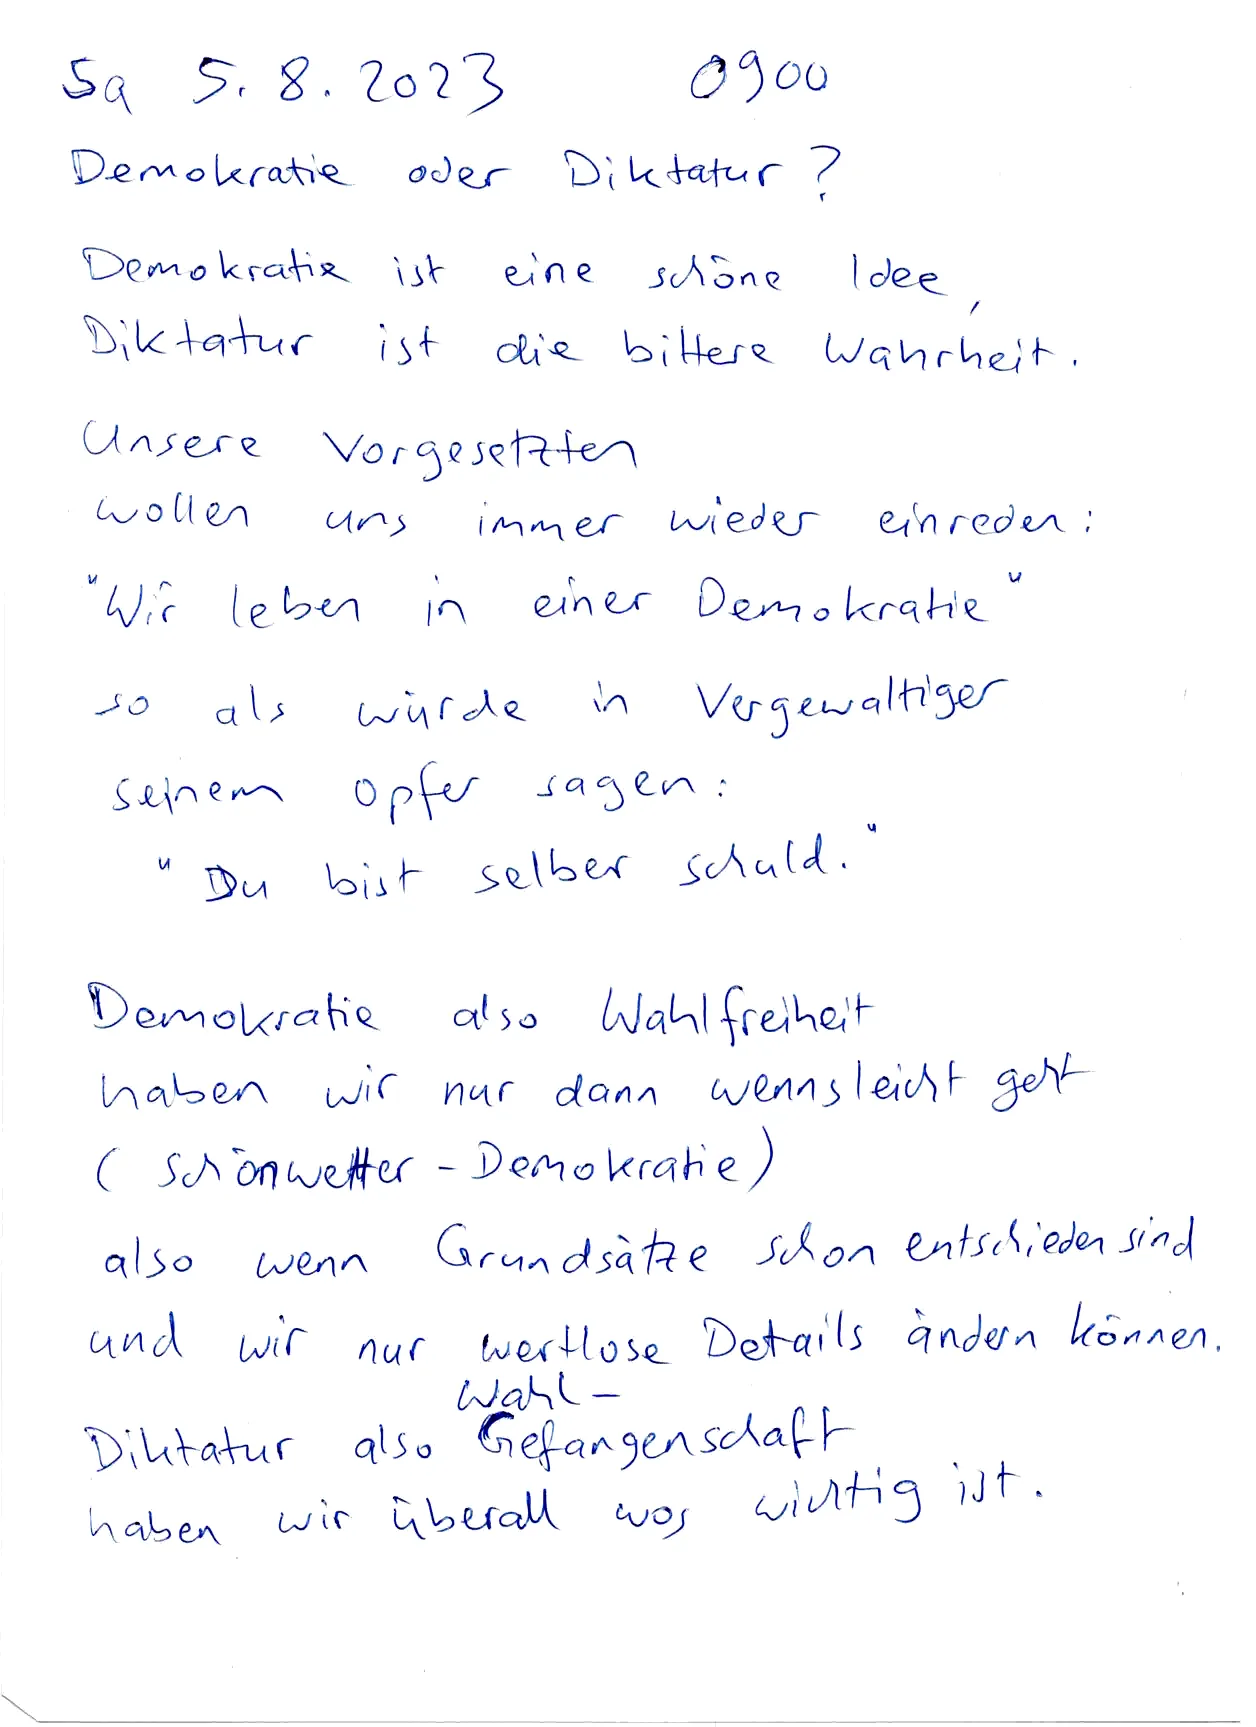 Sa 5.8.2023 0900
Demokratie oder Diktatur?
Demokratie ist eine schöne Idee,
Diktatur ist die bittere Wahrheit.
Unsere Vorgesetzten
wollen uns immer wieder einreden:
"Wir leben in einer Demokratie"
so als würde in Vergewaltiger
seinem Opfer sagen:
"Du bist selber schuld."
Demokratie also Wahlfreiheit
haben wir nur dann wenns leicht geht
(Schönwetter-Demokratie)
also wenn Grundsätze schon entschieden sind
und wir nur wertlose Details ändern können.
Wahl-
Diktatur also Gefangenschaft
haben wir überall wos wichtig ist.